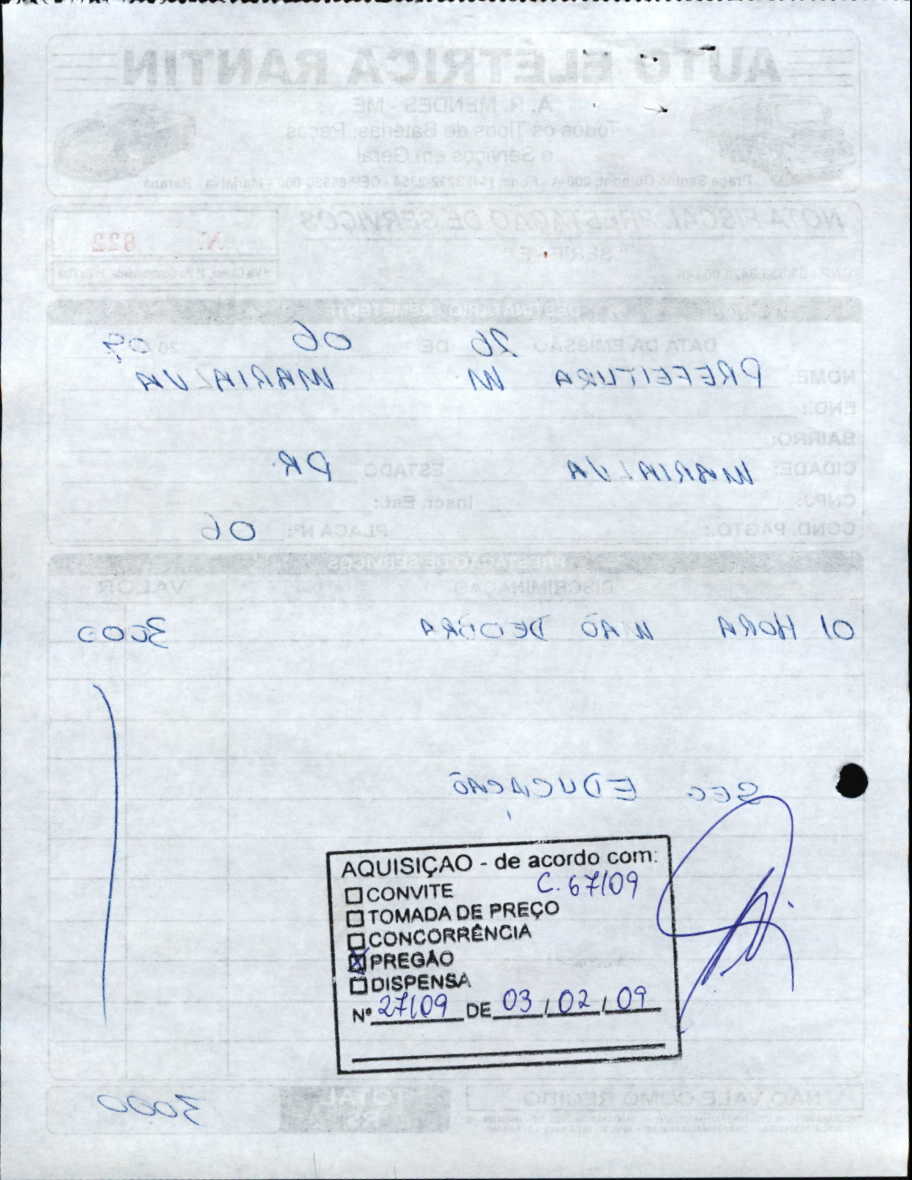 AUTO ELÉTRICA RANTIN
A. R. MENDES - ME
Todos os Tipos de Baterias, Peças
e Serviços em Geral
NOTA FISCAL PRESTAÇÃO DE SERVIÇOS
Nº 622
DATA DA EMISSÃO 26 DE 06 20 09
NOME: PREFEITURA M. MARIALVA
END.:
BAIRRO:
CIDADE: MARIALVA ESTADO PR
CNPJ: Inscr. Est.:
COND. PAGTO.: PLACA Nº: 06
PRESTAÇÃO DE SERVIÇOS
DISCRIMINAÇÃO VALOR
01 HORA MAO DEOBRA 3000
SEC. EDUCAÇAÕ
AQUISIÇAO - de acordo com:
CONVITE C. 67/09
TOMADA DE PREÇO
CONCORRÊNCIA
PREGÃO
DISPENSA
Nº 27/09 DE 03 / 02 / 09
NÃO VALE COMO RECIBO TOTAL 3000